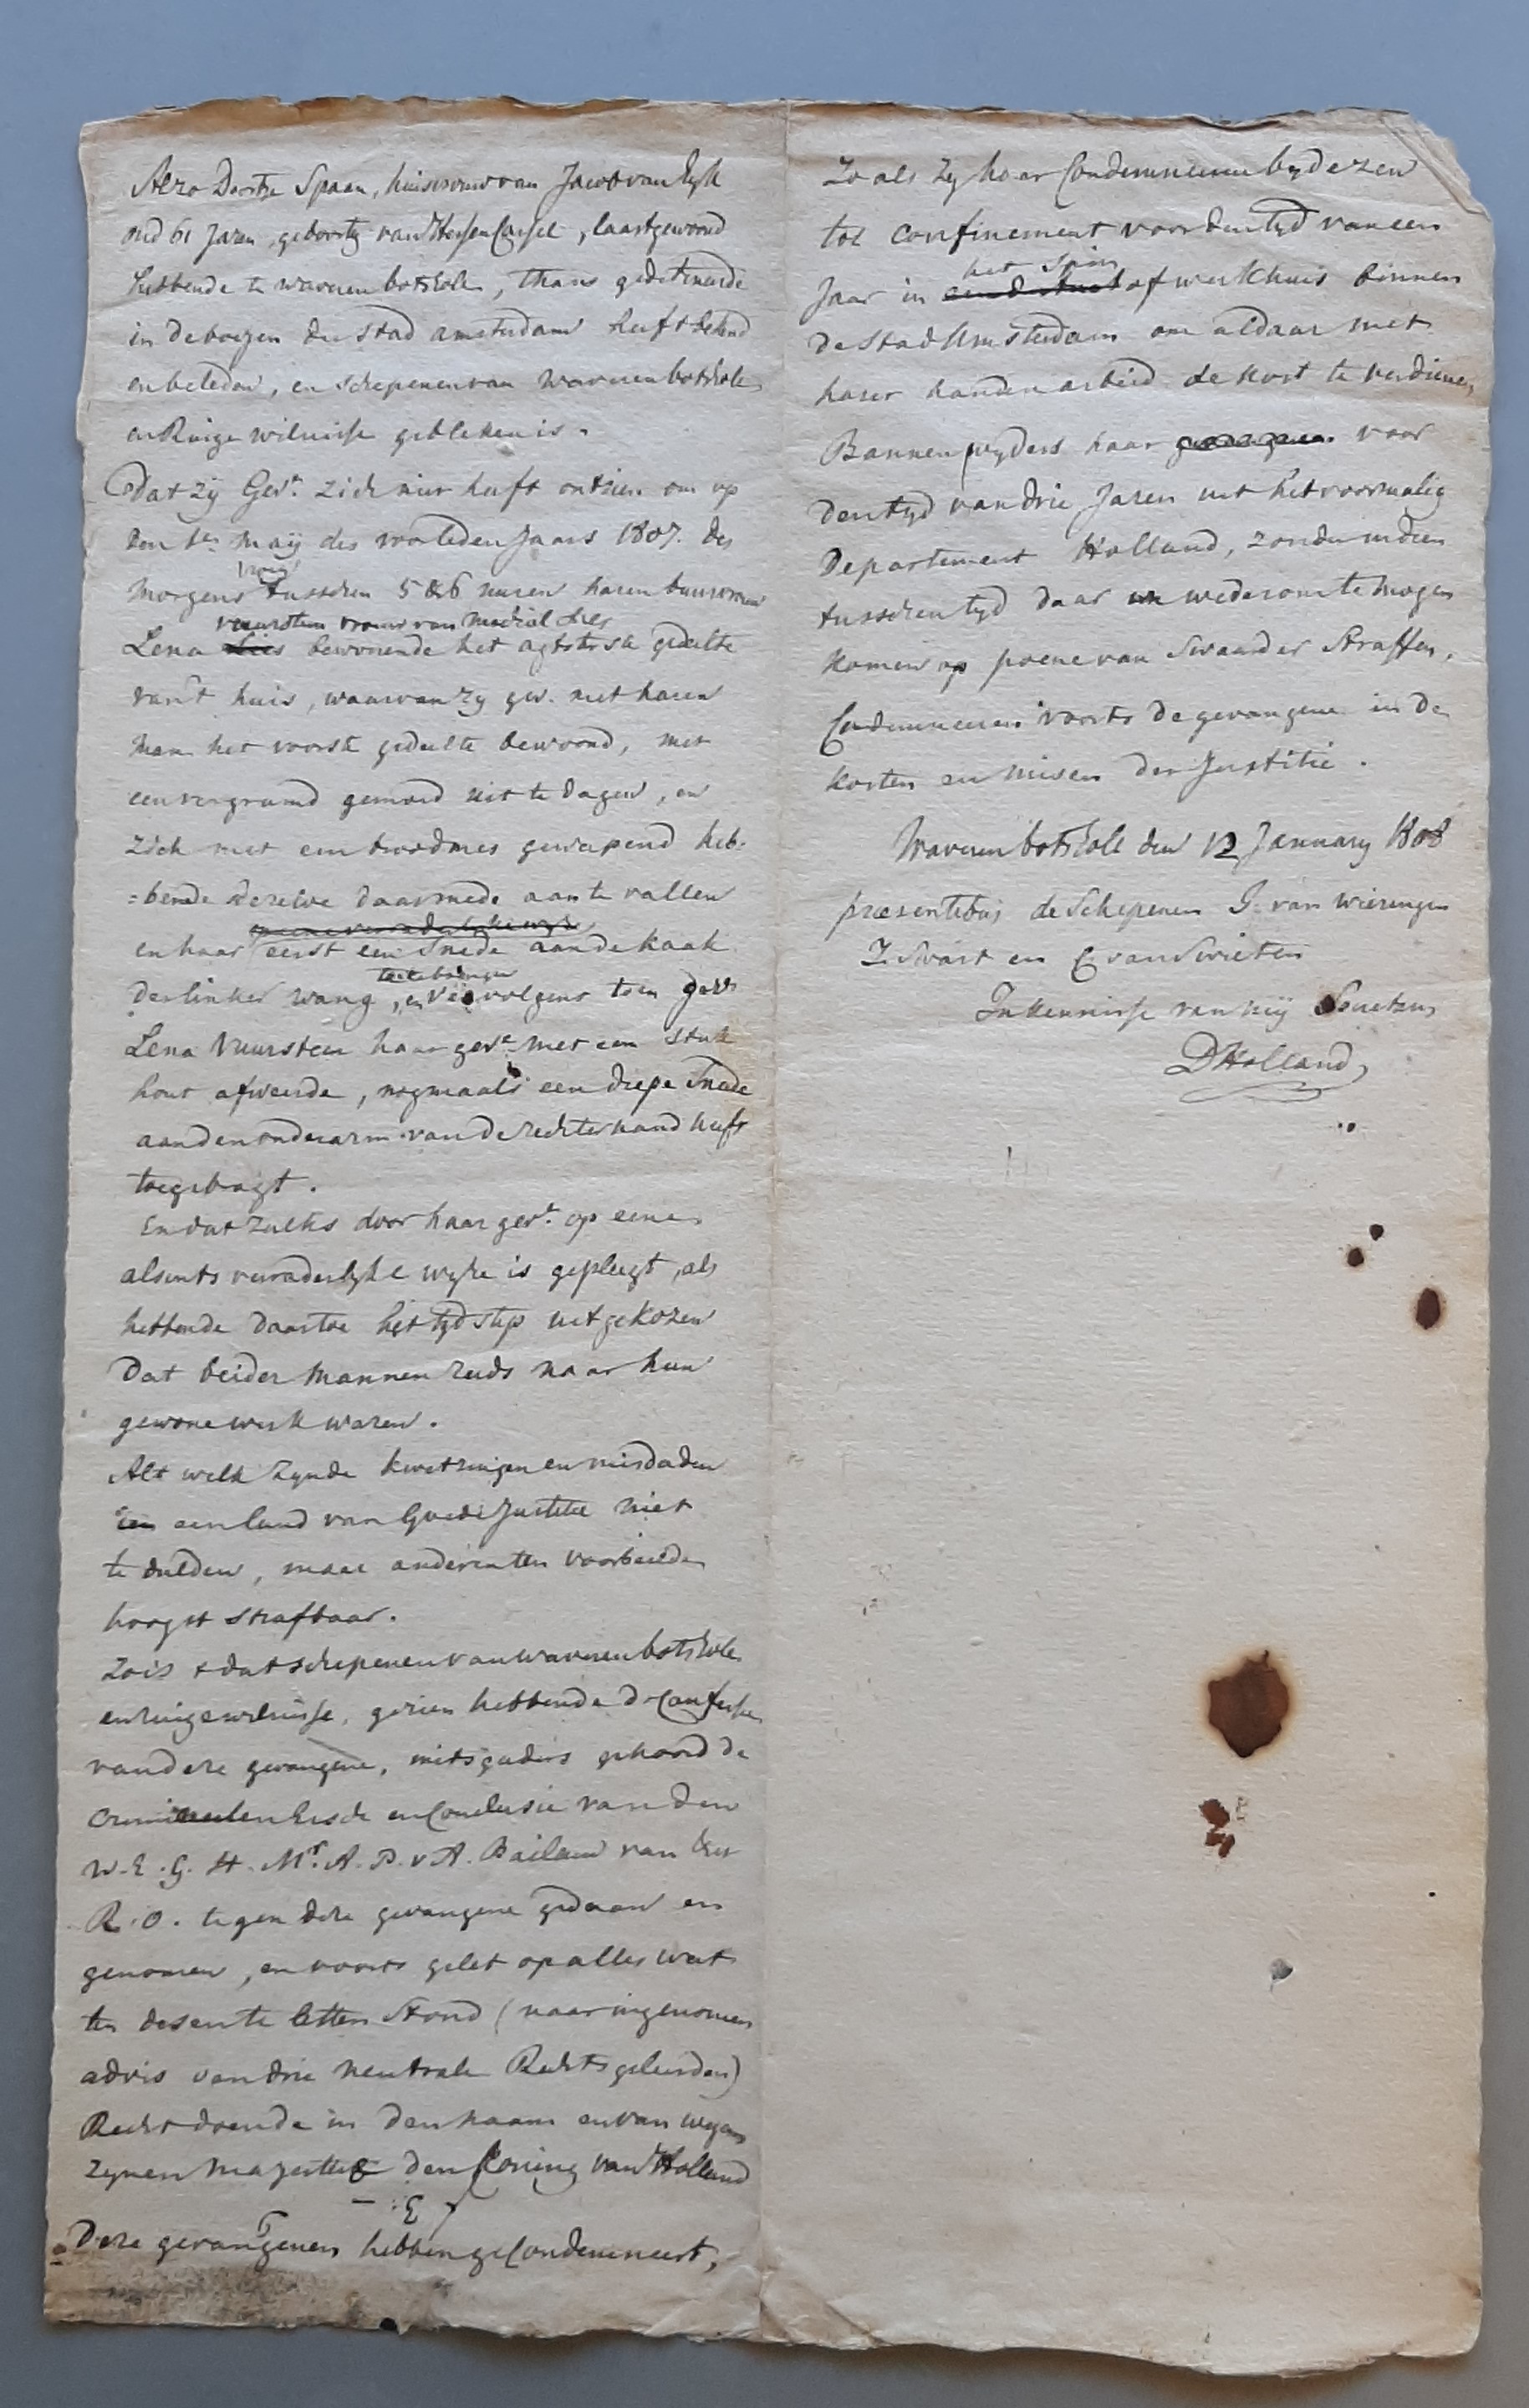 Alzo Dortje Spaan, huisvrouw van Jacob van Dyk
oud 61 Jaren, geboortig van Hessen Cassel, laast gewoond
hebbende te waveren botshole, thans gedetineerde
in de boeyen der stad amsterdam heeft bekend
en beleden, en schepenen van waveren botshole
en Ruige wilnisse gebleken is.
Dat zij Gev.e zich niet heeft ontzien om op
den 1en maij des voorleden Jaars 1807. des
morgens vroeg tusschen 5 & 6 uuren haren buurvrouw
vuurstein vrouw van Michiel Lies
Lena Lies bewonende het agterste gedeelte
van 't huis, waarvan zy gev. met haren
man het voorste gedeelte bewoond, met
een vergramd gemoed uit te dagen, en
zich met een broodmes gewapend heb-
=bende dezelve daarmede aan te vallen
op eene verraderlyke wyze
en haar eerst een Snede aan de kaak
toe te brengen
der linker wang, en vervolgens toen gev.
Lena Vuurstein haar gev.e met een stuk
hout afweerde, nogmaals een diepe Snede
aan den onderarm van de rechterhand heeft
toegebragt.
En dat zulks door haar gev.e op eene
alsints verraderlyke wyze is gepleegt, als
hebbende daartoe het tydstip uitgekozen
Dat beider mannen reeds naar hun
gewone werk waren.
Alt welk zynde kwetzingen en misdaden
in een land van Goede Justitie niet
te dulden, maar anderen ten voorbeelde
hoogst strafbaar.
Zo is t dat schepenen van waveren botshole
en ruige wilnisse, gezien hebbende de Confessie
van deze gevangene, mitsgaders gehoord de
crimineelen Eisch en Conclusie van den
W. E. G. H. Mr. A. P. v A. Bailluw van der
R. O. tegen deze gevangene gedaan en
genomen, en voorts gelet op alles wat
ten desen te letten Stond (naar ingenomen
advis van drie neutrale Rechtsgeleerden)
Recht doende in den naam en van wegen
zynen majesteit den Koning van Holland
Deze gevangenen hebben geCondemneert,
Zo als Zy haar Condemneeren by dezen
tot confinement voor den tyd van een
het Spin
Jaar in of werkhuis binnen
de Stad Amsterdam om aldaar met
harer handen arbeid de kost te verdienen,
Bannen wyders haar voor
den tyd van drie Jaren uit het voormalig
Departement Holland, zonder midden
tusschentyd daar wederom te mogen
komen op poene van Swaarder Straffen,
Condemneeren voorts de gevangene in de
kosten en misen der Justitie.
Waveren botshole den 12 January 1808
præsentibus de Schepenen J. van Wieringen
Z. Swart en C van Swieten
In kennisse van mij Secretaris
DHolland